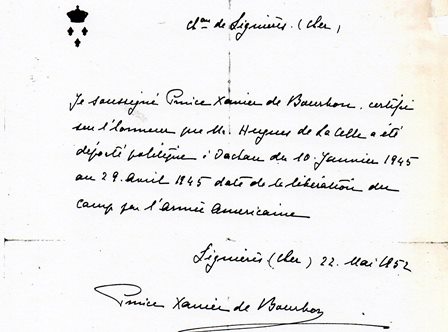 Chau de Lignières. (Cher)
Je soussigné Prince Xavier de Bourbon, certifie
sur l'honneur que Mr. Hugues de La Celle a été
déporté politique à Dachau du 10. Janvier 1945
au 29. Avril 1945 date de la libération du
camp par l'Armée Americaine
Lignières (Cher) 22. Mai 1952
Prince Xavier de Bourbon